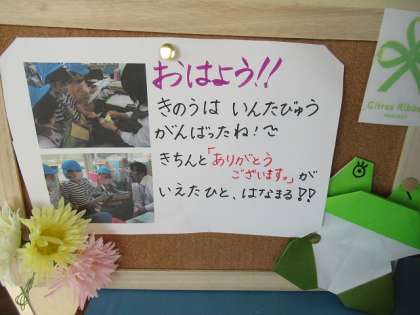 おはよう!!
きのうは いんたびゅう
がんばったね!
きちんと「ありがとう
ございます。」が
いえたひと、はなまる!!
Citrus Ribbon
PROJECT